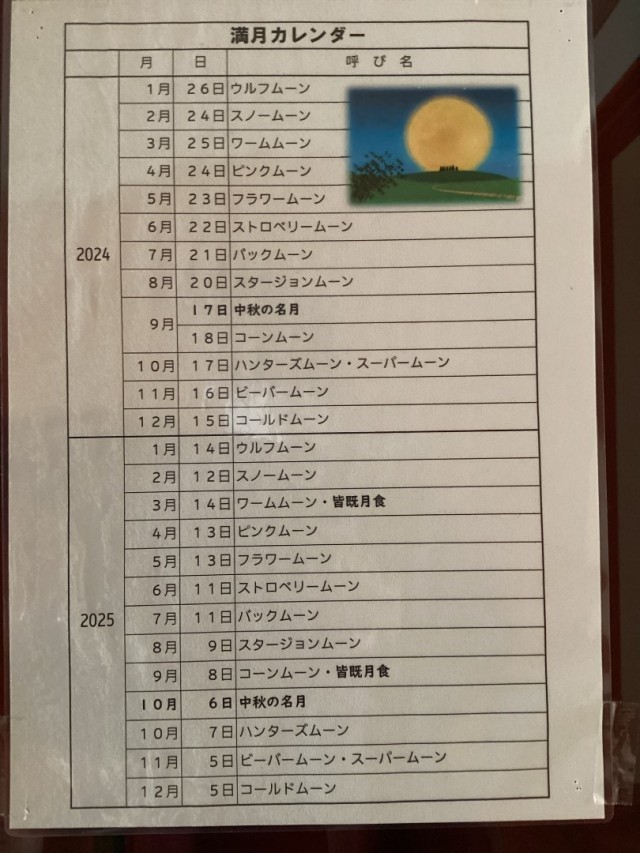 満月カレンダー
月 日 呼び名
2024
1月 26日 ウルフムーン
2月 24日 スノームーン
3月 25日 ワームムーン
4月 24日 ピンクムーン
5月 23日 フラワームーン
6月 22日 ストロベリームーン
7月 21日 バックムーン
8月 20日 スタージョンムーン
9月 17日 中秋の名月
18日 コーンムーン
10月 17日 ハンターズムーン・スーパームーン
11月 16日 ビーバームーン
12月 15日 コールドムーン
2025
1月 14日 ウルフムーン
2月 12日 スノームーン
3月 14日 ワームムーン・皆既月食
4月 13日 ピンクムーン
5月 13日 フラワームーン
6月 11日 ストロベリームーン
7月 11日 バックムーン
8月 9日 スタージョンムーン
9月 8日 コーンムーン・皆既月食
10月 6日 中秋の名月
10月 7日 ハンターズムーン
11月 5日 ビーバームーン・スーパームーン
12月 5日 コールドムーン